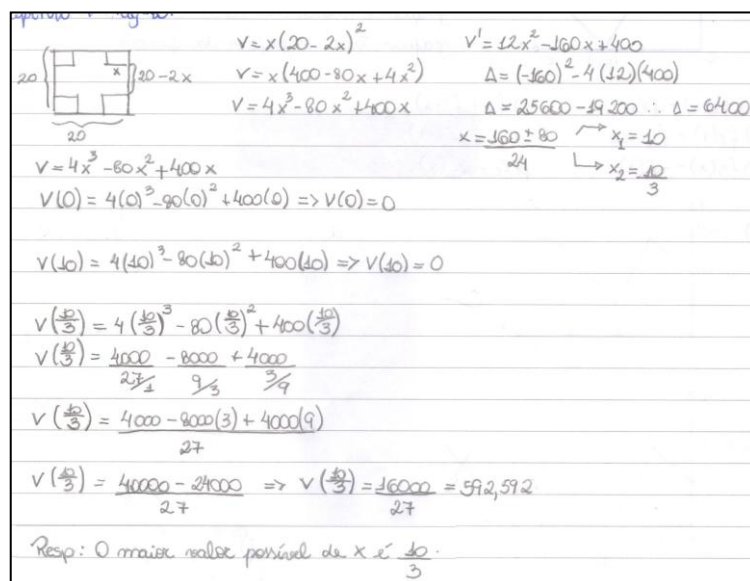 20
x
20-2x
20
V = x(20-2x)²
V = x(400-80x+4x²)
V = 4x³-80x²+400x
V' = 12x²-160x+400
Δ = (-160)²-4(12)(400)
Δ = 25600-19200 ∴ Δ = 6400
x = 160 ± 80 / 24 → x₁ = 10
↳ x₂ = 10/3
V = 4x³-80x²+400x
V(0) = 4(0)³-80(0)²+400(0) => V(0) = 0
V(10) = 4(10)³-80(10)²+400(10) => V(10) = 0
V(10/3) = 4(10/3)³-80(10/3)²+400(10/3)
V(10/3) = 4000 / 27/1 - 8000 / 9/3 + 4000 / 3/9
V(10/3) = 4000-8000(3)+4000(9) / 27
V(10/3) = 40000-24000 / 27 => V(10/3) = 16000 / 27 = 592,592
Resp: O maior valor possível de x é 10/3.